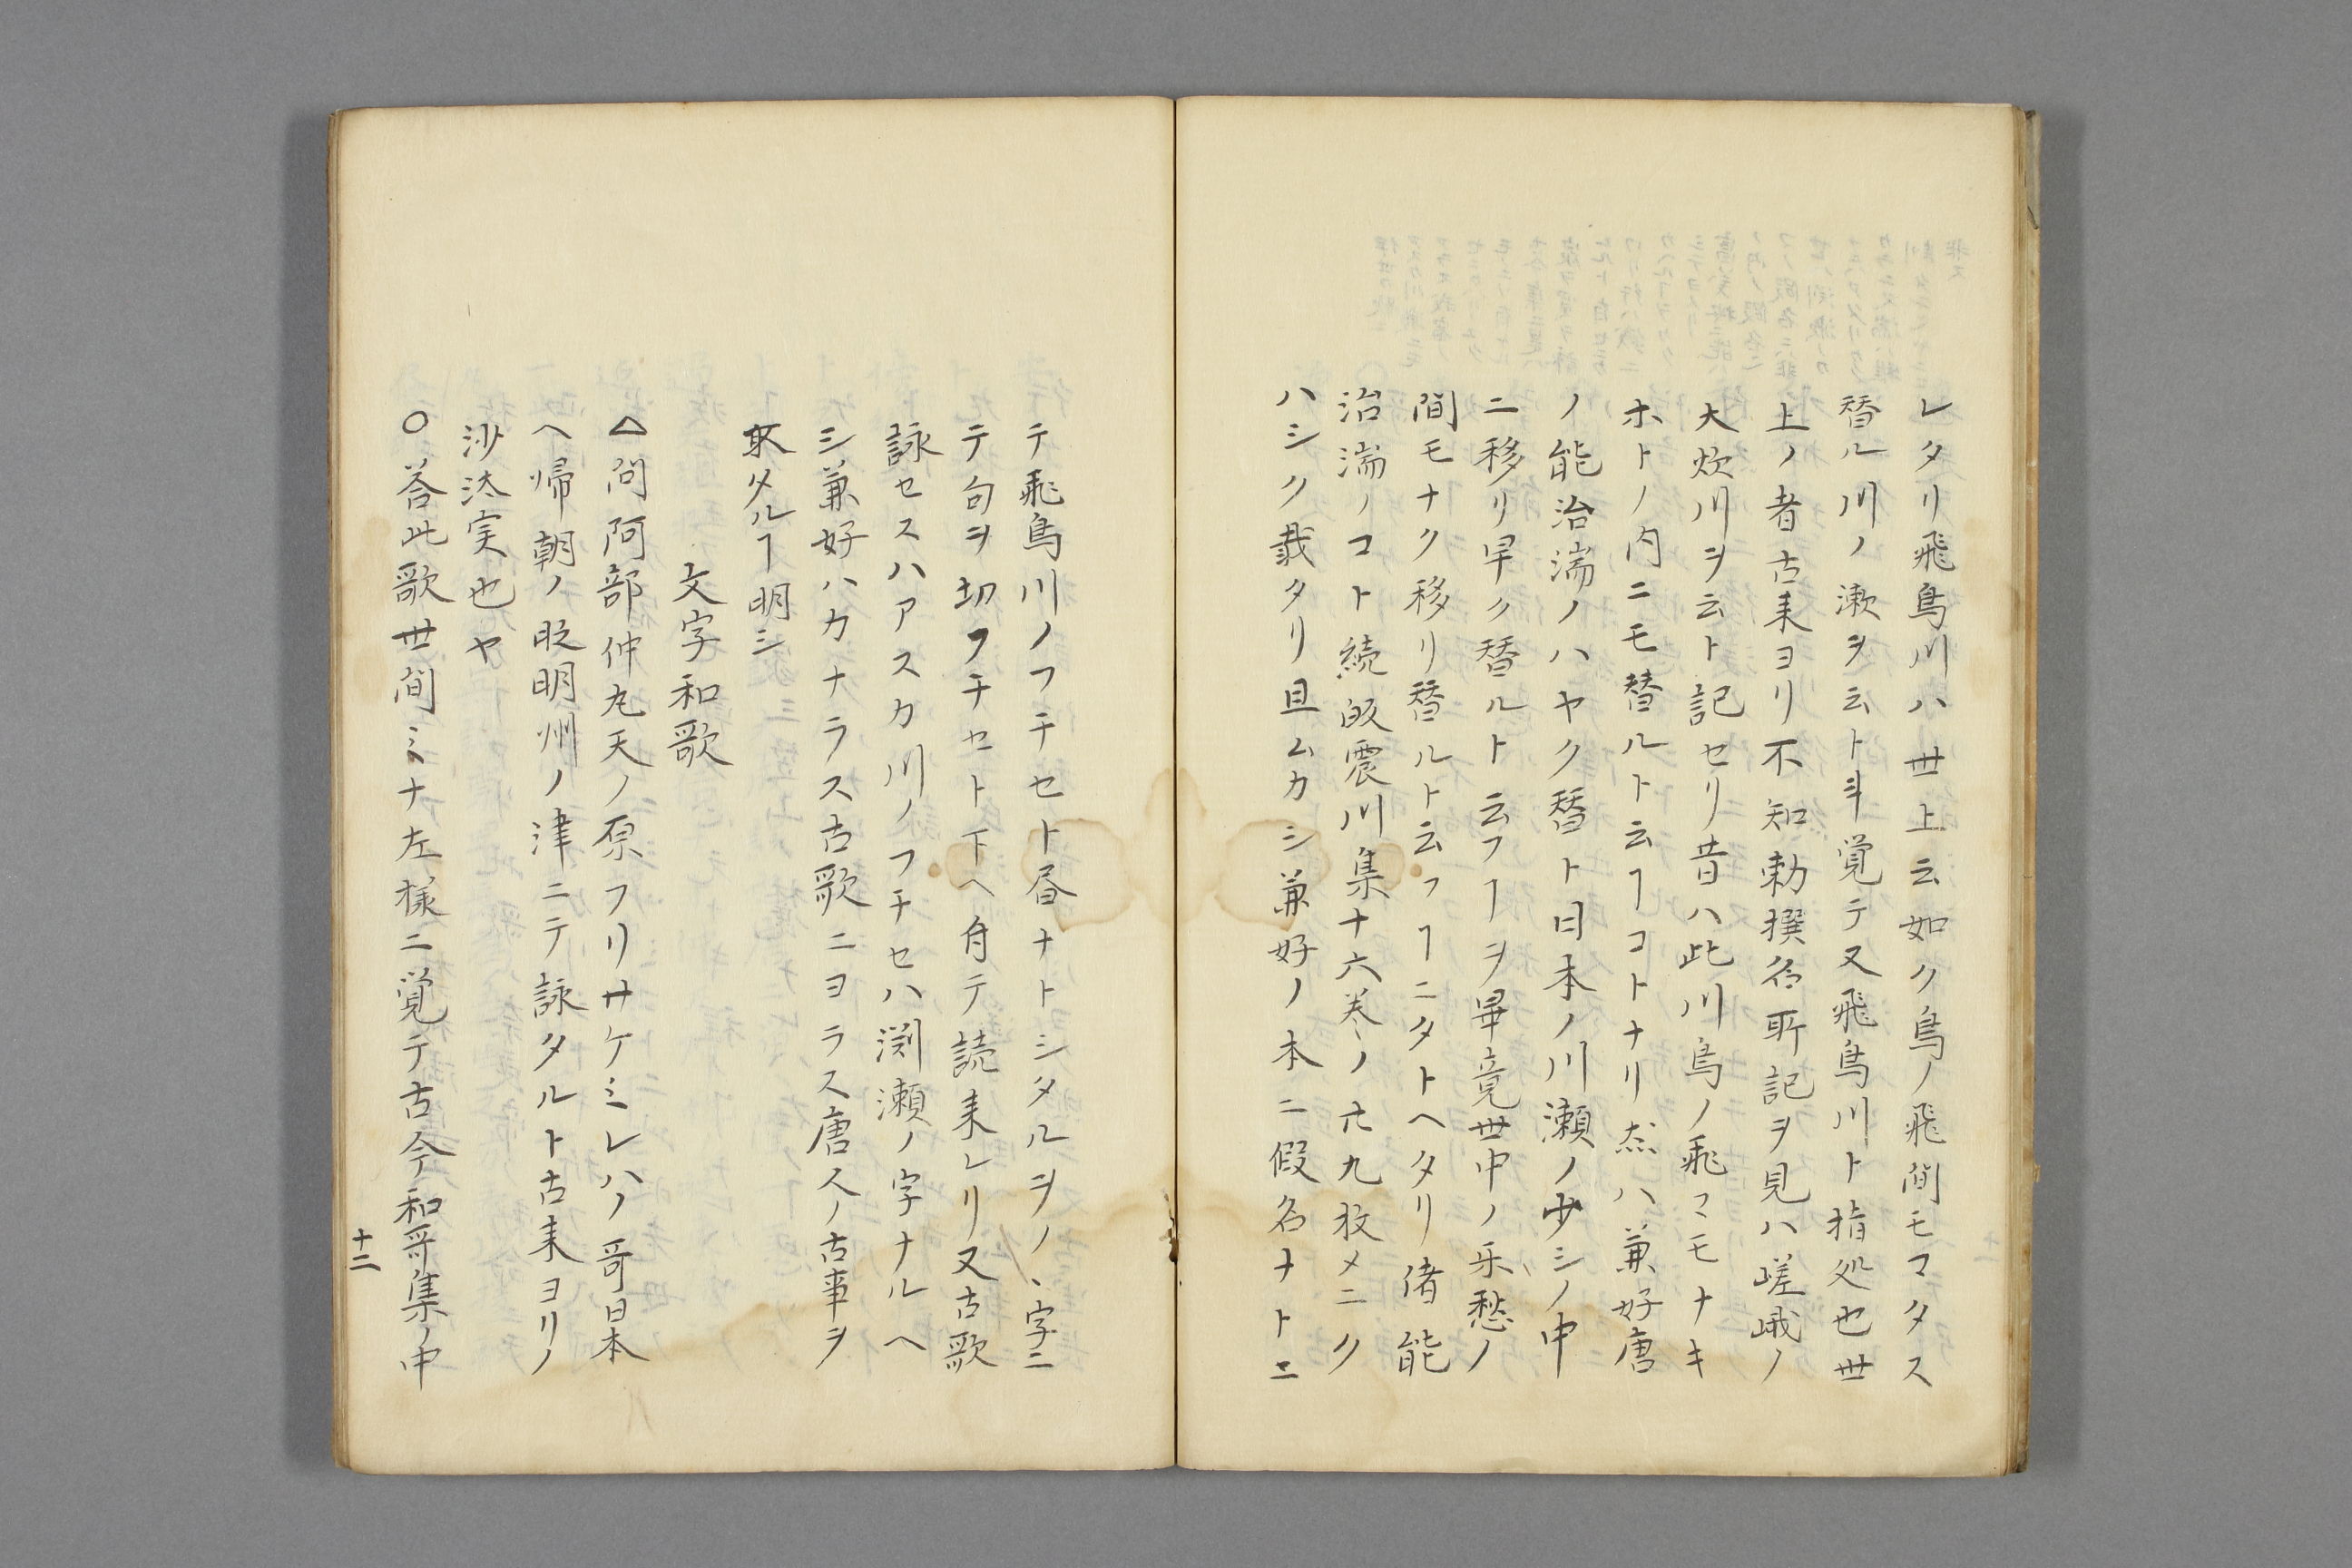 レタリ飛鳥川ハ世上云如ク鳥ノ飛間モマタス
替ル川ノ漱ヲ云ト斗覚テ又飛鳥川ト指処也世
上ノ者古来ヨリ不知勅撰名所記ヲ見ハ嵯峨ノ
大炊川ヲ云ト記セリ昔ハ此川鳥ノ飛マモナキ
ホトノ内ニモ替ルト云ヿコトナリ然ハ兼好唐
ノ能治湍ノハヤク替ト日本ノ川瀬ノ少シノ中
ニ移リ早ク替ルト云フヿヲ畢竟世中ノ乐愁ノ
間モナク移リ替ルト云フヿニタトヘタリ偖能
治湍ノコト続皈震川集十六巻ノ廿九枚メニク
ハシク載タリ且ムカシ兼好ノ本ニ假名ナトニ
テ飛鳥川ノフチセト昼ナトシタルヲノヽ字ニ
テ句ヲ切フチセト下ヘ付テ読来レリ又古歌
詠セスハアスカ川ノフチセハ渕瀬ノ字ナルヘ
シ兼好ハカナラス古歌ニヨラス唐人ノ古事ヲ
取タルヿ明シ
文字和歌
△問阿部仲丸天ノ原フリサケミレハノ哥日本
ヘ帰朝ノ時明州ノ津ニテ詠タルト古来ヨリノ
沙汰実也ヤ
○答此歌世間ミナ左様ニ覚テ古今和哥集ノ中
十二